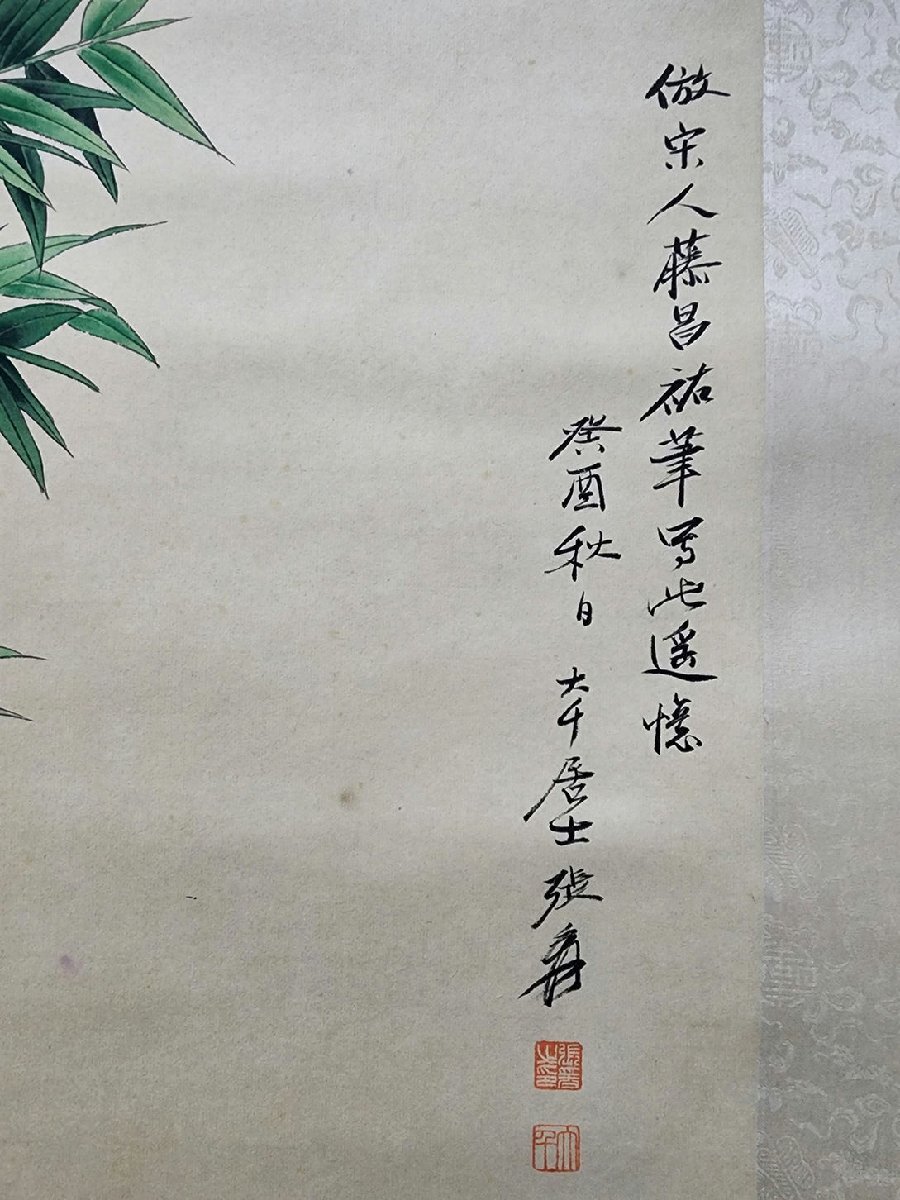 倣宋人藤昌祐筆寫此遥憶
癸酉秋日 大千居士張爰
大千